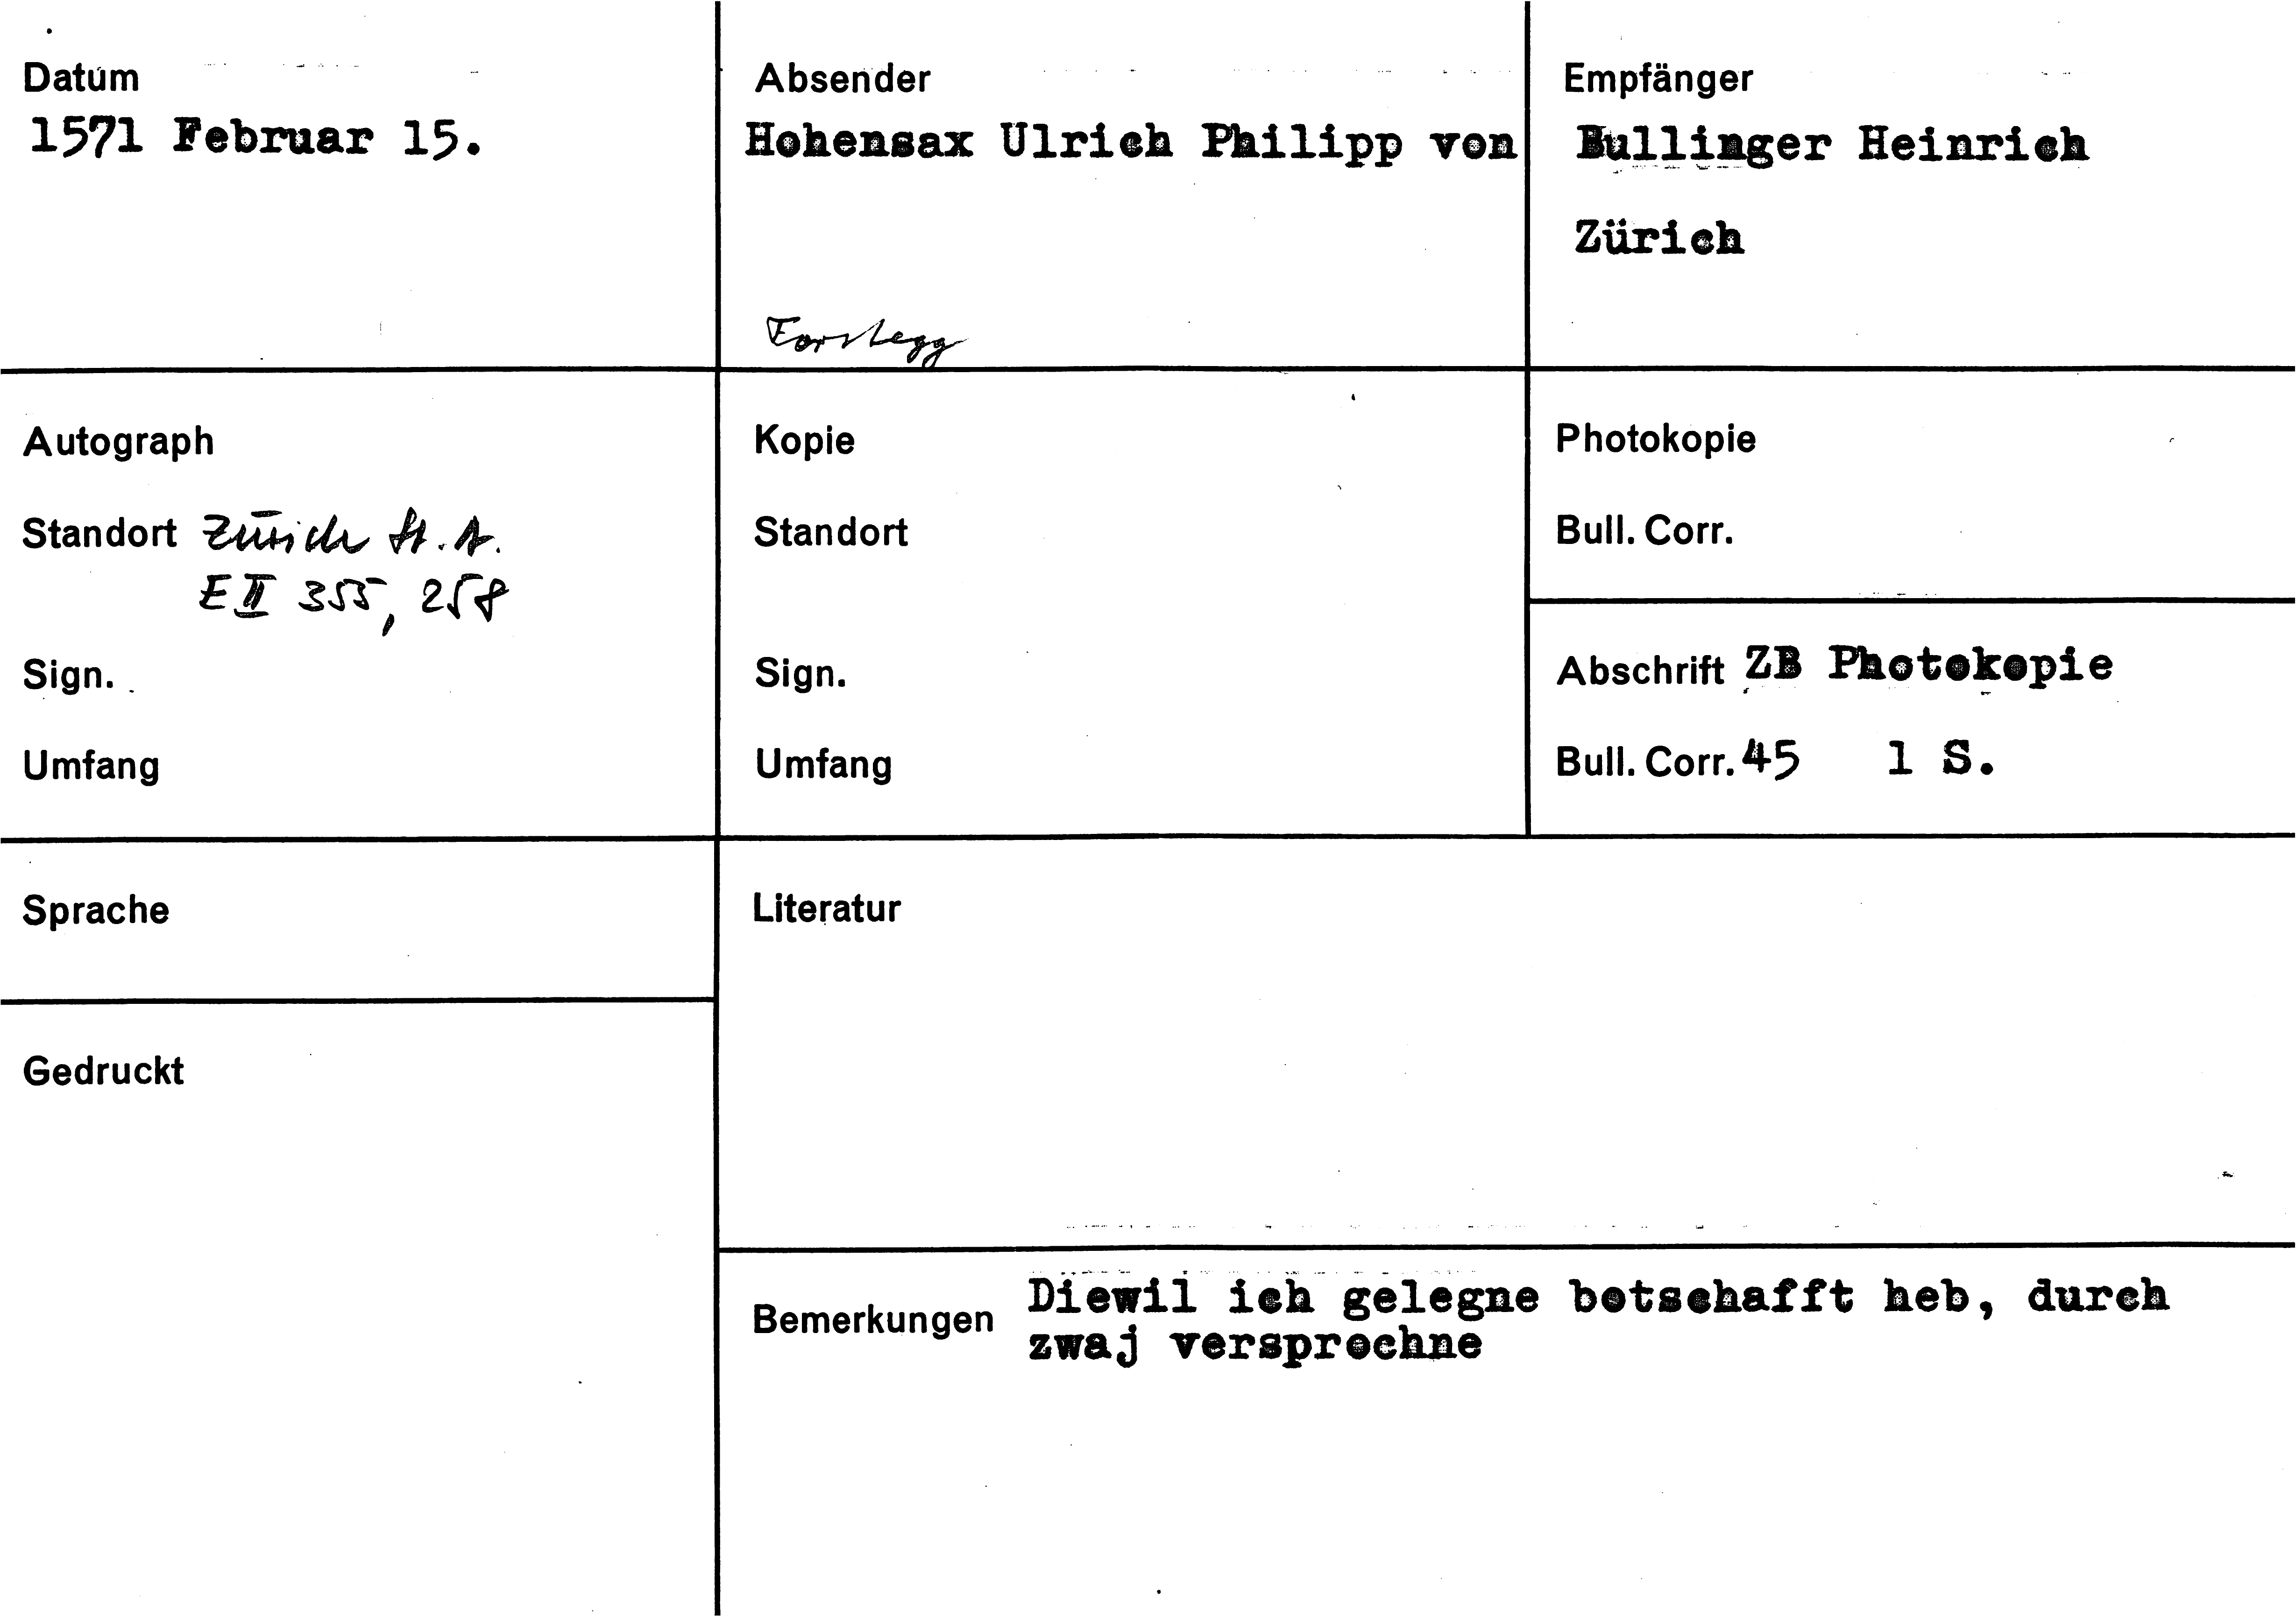 Datum
1571 Februar 15.
Absender
Hohensax Ulrich Philipp von
Forstegg
Empfänger
Bullinger Heinrich
Zürich
Autograph
Standort Zürich St. A.
E II 355, 258
Sign.
Umfang
Kopie
Standort
Sign.
Umfang
Photokopie
Bull. Corr.
Abschrift ZB Photokopie
Bull. Corr. 45 1 S.
Sprache
Literatur
Gedruckt
Bemerkungen Diewil ich gelegne botschafft heb, durch
zwaj versprochne